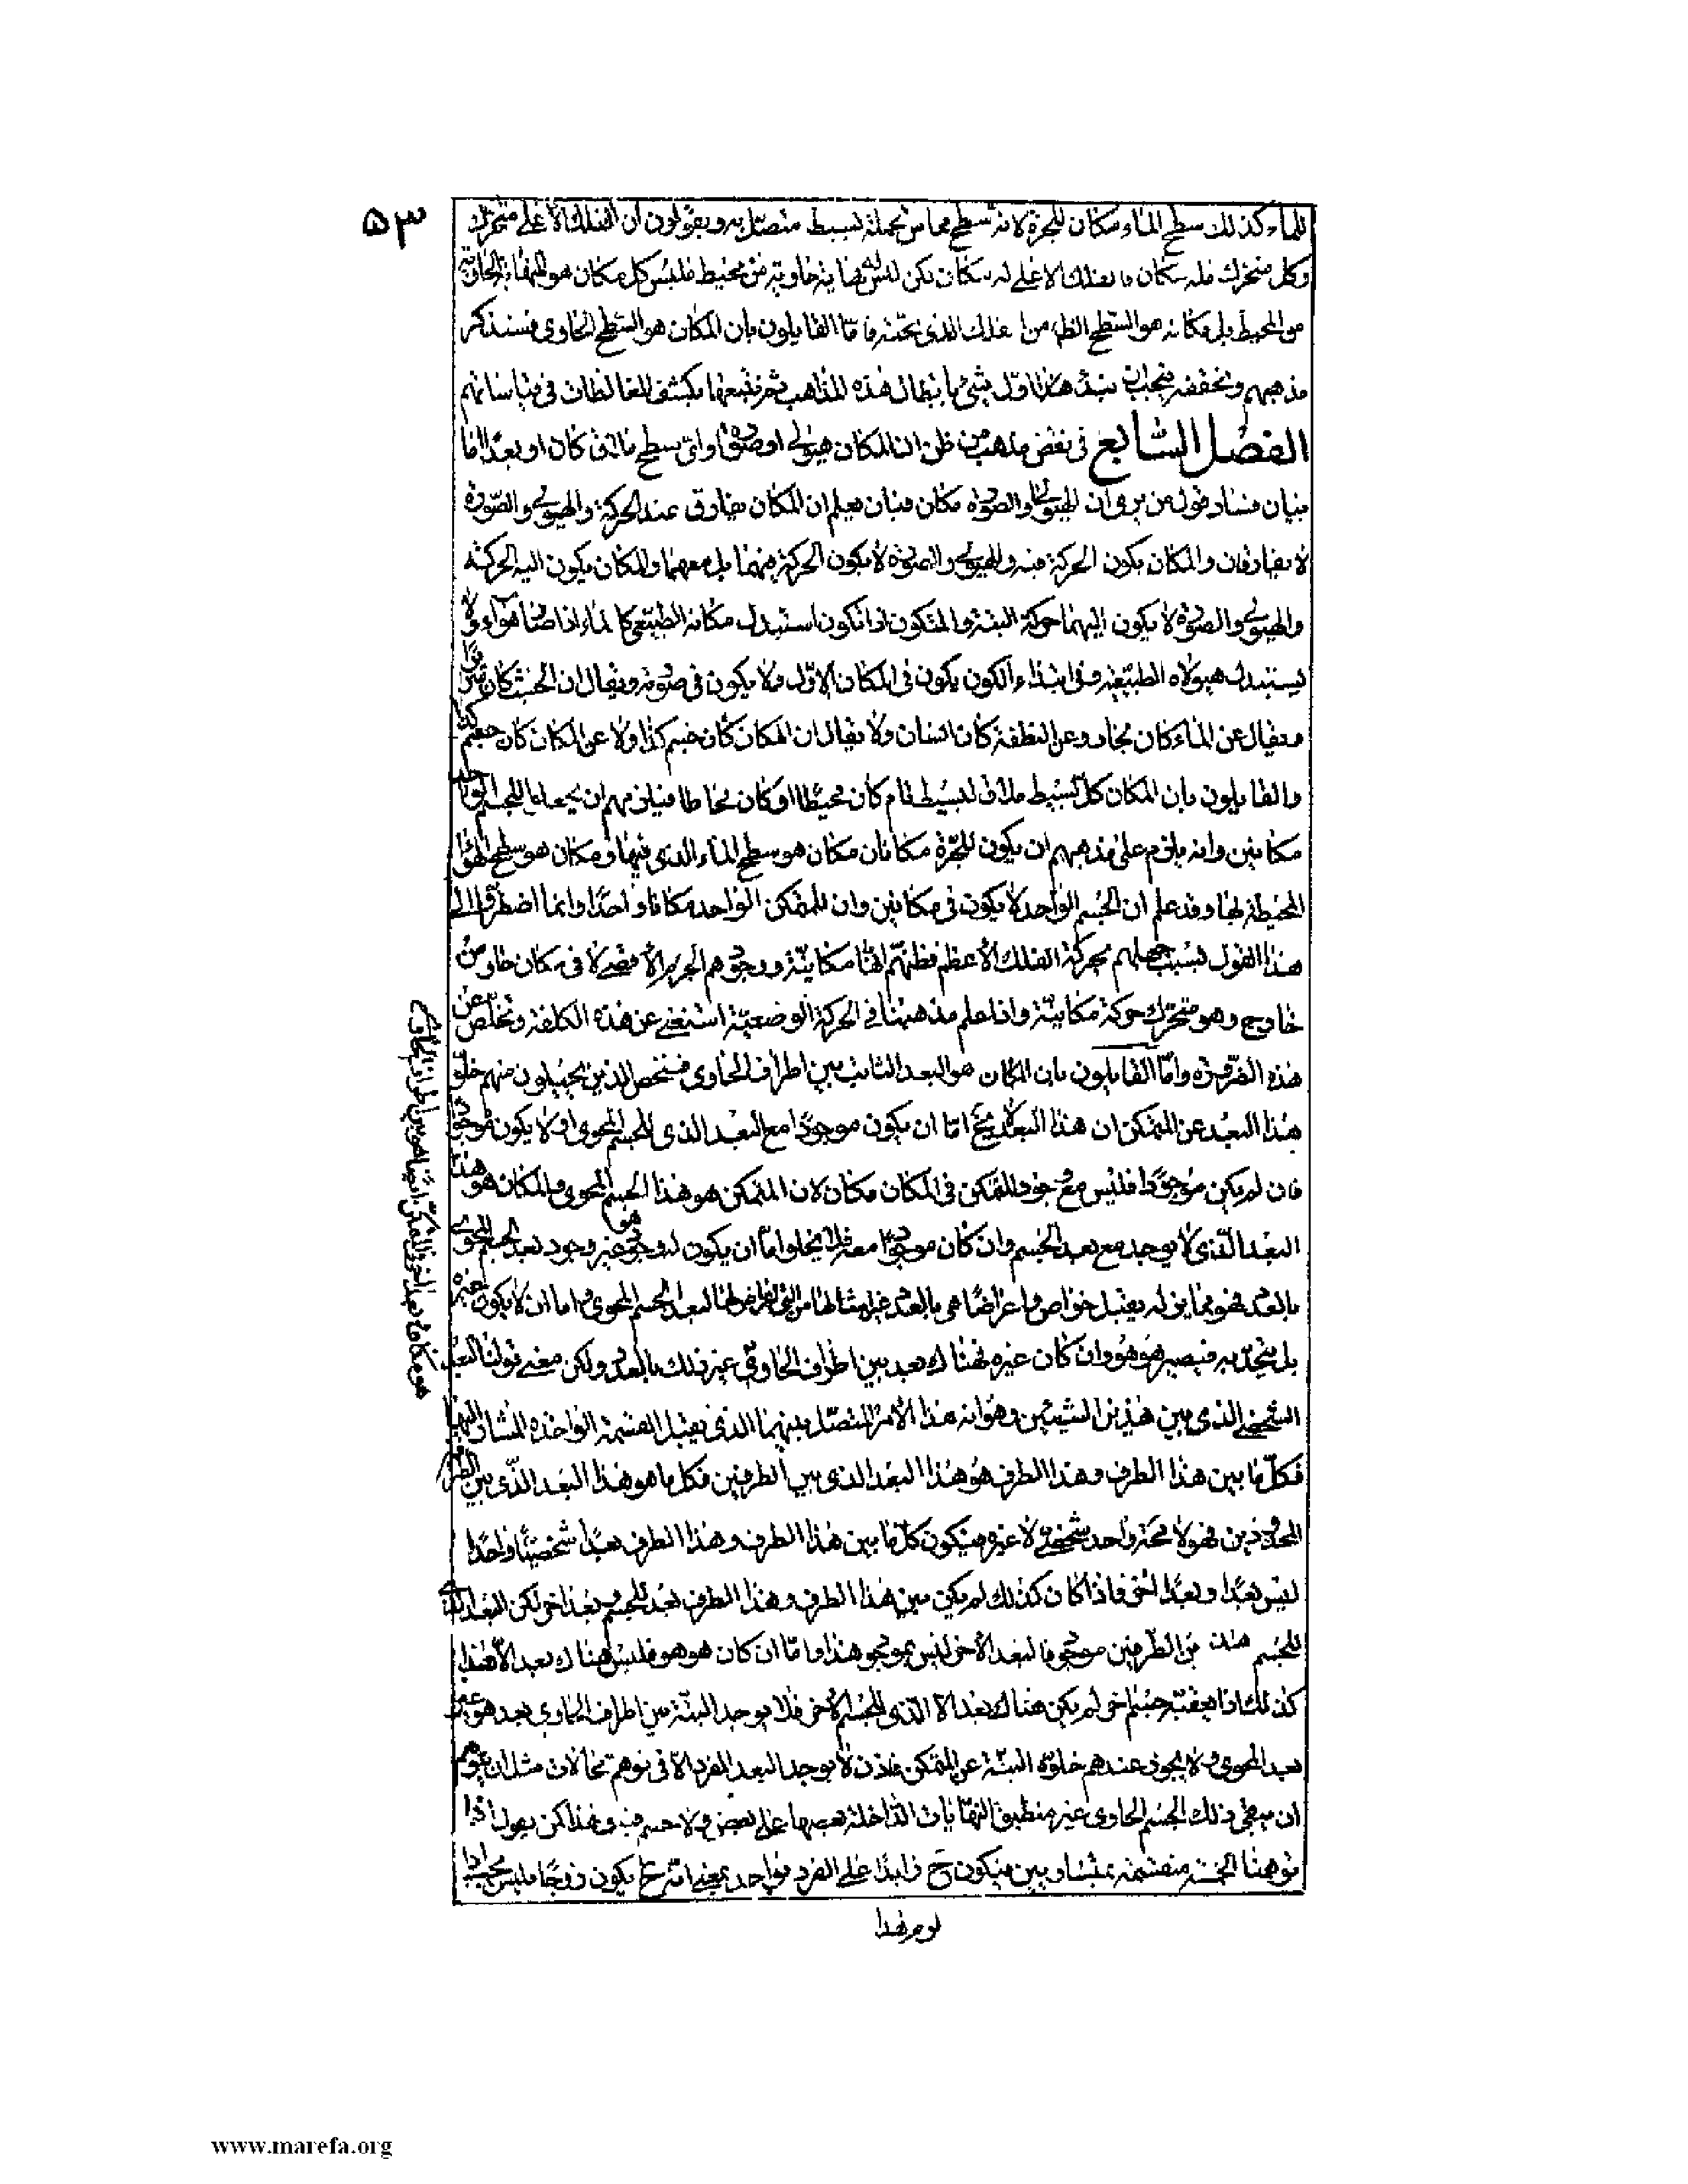 ٥٣
للماء كذلك سطح الماء مكان للجرة لانه سطح مماس لجملة بسيط متصل به ويقولون ان الفلك الاعلى متحرك
وكل متحرك فله مكان فالفلك الاعلى له مكان لكن ليس له نهاية حاوية من محيط فليس كل مكان هو النهاية الحاوية
من المحيط بل مكانه هو السطح الظاهر من الفلك الذى تحته فاما القايلون بان المكان هو السطح الحاوى فسنذكر
مذهبهم ونحققه فيجب ان نبدء هذا اول شئ بابطال هذه المذاهب ثم نتبعها بكشف المغالطات فى قياساتهم
الفصل السابع فى نقض مذهب من ظن ان المكان هيولى او صورة او اى سطح ملاقى كان او بعدا اما
بيان فساد قول من يرى ان الهيولى والصورة مكان فبان يعلم ان المكان يفارق عند الحركة والهيولى والصورة
لا يفارقان والمكان يكون الحركة فيه والهيولى والصورة لا يكون الحركة فيهما بل معهما والمكان يكون اليه الحركة
والهيولى والصورة لا يكون اليهما حركة البتة والمتكون اذا تكون استبدل مكانه الطبيعى كالماء اذا صار هواء ولا
يستبدل هيولاه الطبيعية وفى ابتداء الكون يكون فى المكان الاول ولا يكون فى صورته ويقال ان الخشب كان سريرا
ويقال عن الماء كان بخار وعن النطفة كان انسان ولا يقال ان المكان كان جسم كذا ولا عن المكان كان جسم كذا
والقايلون بان المكان كل بسيط ملاق لبسيط تام كان محيطا او كان محاطا فيلزمهم ان يجعلوا للجسم الواحد
مكانين وانه يلزم على مذهبهم ان يكون للجرة مكانان مكان هو سطح الماء الذى فيها ومكان هو سطح الهواء
المحيط بها وقد علم ان الجسم الواحد لا يكون فى مكانين وان للمتمكن الواحد مكانا واحدا وانما اضطروا الى
هذا القول بسبب جهلهم بحركة الفلك الاعظم فظنهم انها مكانية ووجودهم الجرم الاقصى لا فى مكان حاو من
خارج وهو متحرك حركة مكانية واذا علم مذهبنا فى الحركة الوضعية استغنى عن هذه الكلفة وتخلص عن
هذه الضرورة واما القايلون بان المكان هو البعد الثابت بين اطراف الحاوى فنخص الذين يحيلون منهم خلو
هذا البعد عن المتمكن ان هذا البعد لا يخ اما ان يكون موجودا مع البعد الذى للجسم المحوى او لا يكون موجودا
فان لم يكن موجودا فليس مع وجود المتمكن فى المكان مكان لان المتمكن هو هذا الجسم المحوى والمكان هو هذا
البعد الذى لا يوجد مع بعد الجسم وان كان موجودا معه فلا يخلوا اما ان يكون له وجود هو غير وجود بعد الجسم المحوى
بالعدد فهو مماين له يقبل خواص واعراضا هى بالعدد غير مثالها من التى لبعد الجسم المحوى واما ان لا يكون غيره
بل يتحد به فيصير هو هو وان كان غيره فهناك بعد بين اطراف الحاوى غير ذلك بالعدد ولكن معنى قولنا البعد
الشخصى الذى بين هذين الشيئين وهو انه هذا الامر المتصل بينهما الذى يقبل القسمة الواحدة المشار اليها
فكل ما بين هذا الطرف وهذا الطرف هو هذا البعد الذى بين الطرفين فكل ما هو هذا البعد الذى بين الطرفين
المحدودين فهو لا محة واحد شخصى لا غيره فيكون كل ما بين هذا الطرف وهذا الطرف بعدا شخصيا واحدا
ليس بعدا وبعدا اخر فاذا كان كذلك لم يكن بين هذا الطرف وهذا الطرف بعد للجسم وبعد اخر لكن البعد الذى
للجسم بين الطرفين موجود فالبعد الاخر ليس بموجود هذا واما ان كان هو هو فليس هناك بعد الا هذا
كذلك اذا يعقبه جسم اخر لم يكن هناك بعد الا الذى للجسم الاخر فلا يوجد البتة بين اطراف الحاوى بعد هو غير
بعد المحوى ولا يجوز عندهم خلوه البتة عن المتمكن فاذن لا يوجد البعد المفرد الا فى توهم محالات مثل ان يتوهم
ان يبقى ذلك الجسم الحاوى غير منطبق النهايات الداخلة بعضها على بعض ولا جسم فيه وهذا كمن يقول اذا
توهمنا الخمسة منقسمة بمتساويين فيكون ح زايدا على الفرد بواحد بمعنى انه ح يكون زوجا فليس يجب اذا
لزم هذا